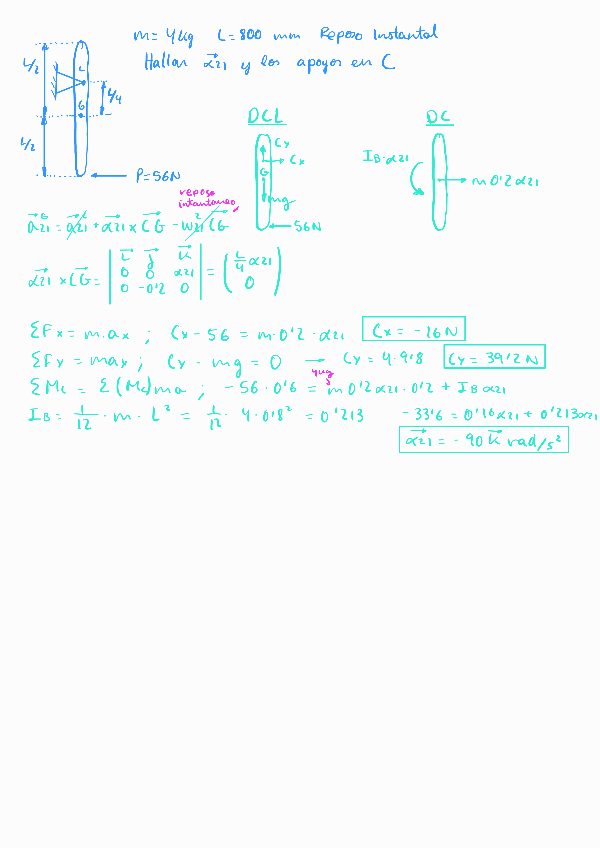 m = 4kg L = 800 mm Reposo Instantal
Hallar α21 y los apoyos en C
L/2
L/2
L
G
L/4
P = 56N
DCL
Cy
Cx
G
mg
56N
DC
IB·α21
m 0'2 α21
reposo
instantaneo
a21^G = a21 + α21 × CG - ω21² CG
α21 × CG = | i j k | = ( L/4 α21 )
0 0 α21
0 -0'2 0
0
ΣFx = m·ax ; Cx - 56 = m·0'2·α21 Cx = -16 N
ΣFy = may ; Cy - mg = 0 → Cy = 4·9'8 Cy = 39'2 N
4kg
ΣMc = Σ(Mc)ma ; -56·0'6 = m 0'2 α21·0'2 + IB α21
IB = 1/12 · m · L² = 1/12 · 4·0'8² = 0'213 -33'6 = 0'16 α21 + 0'213 α21
α21 = -90 k rad/s²